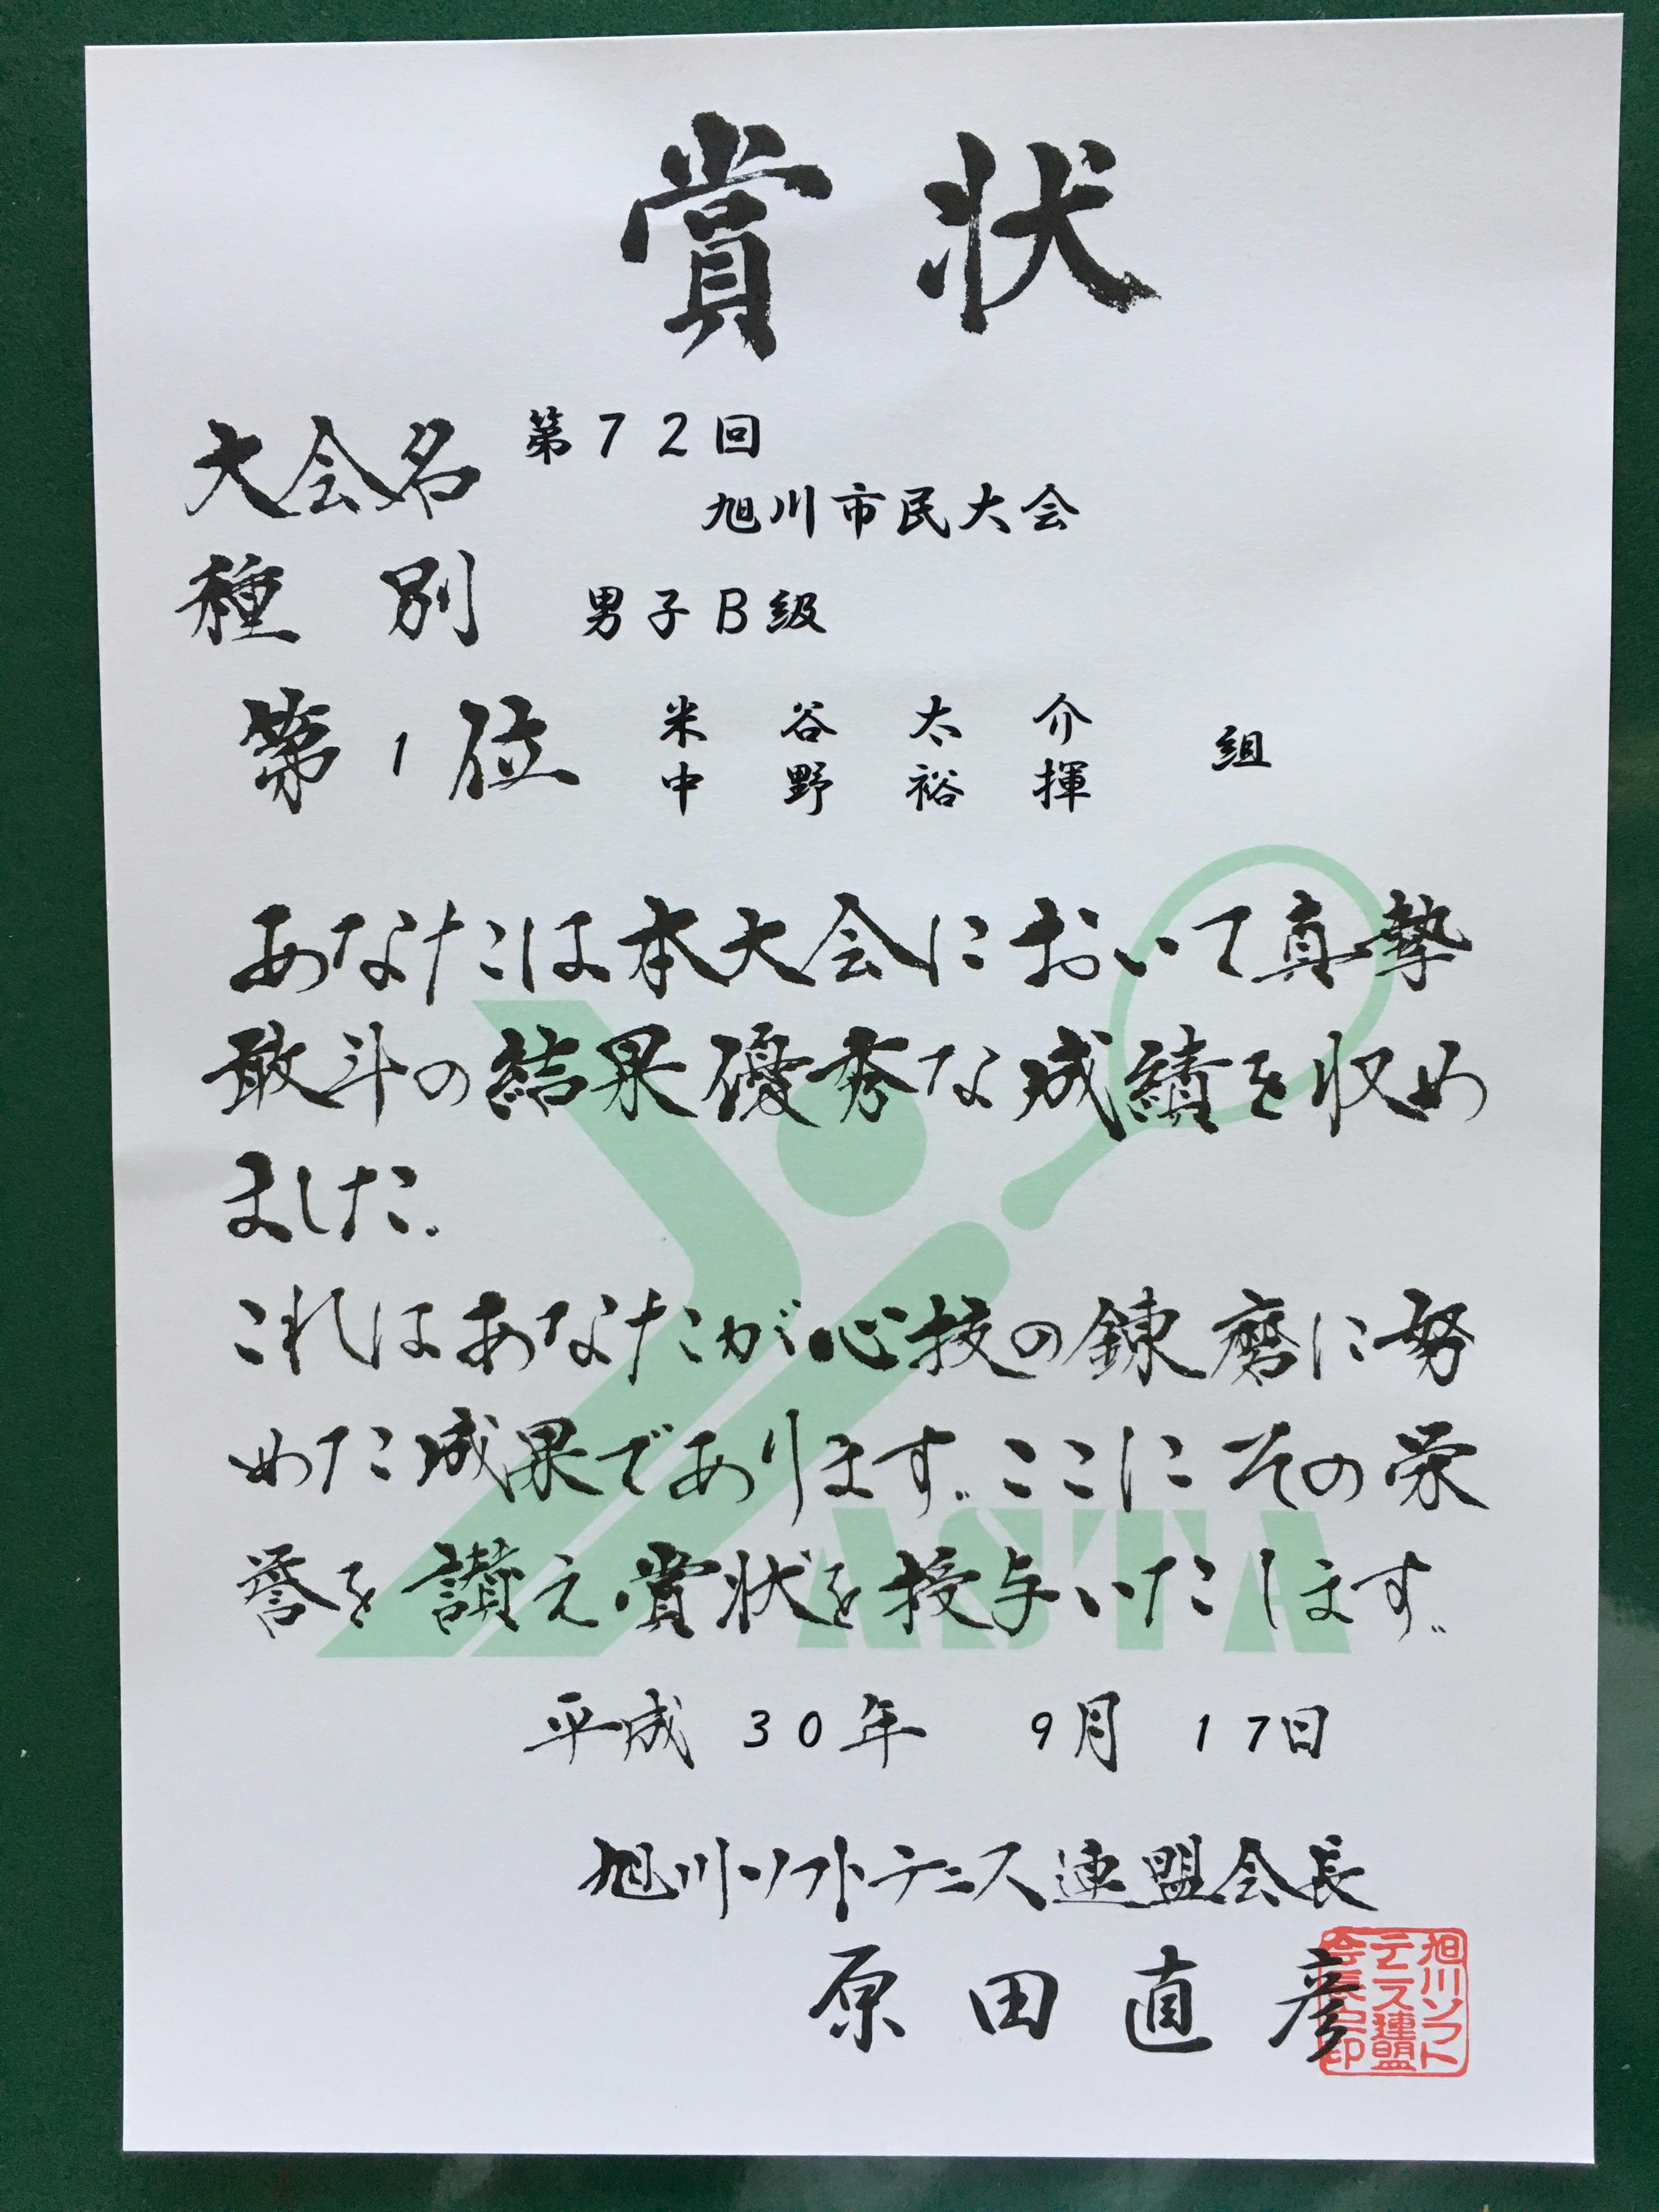 賞状
大会名 第72回
旭川市民大会
種別 男子B級
第1位 米谷太介 組
中野裕揮
あなたは本大会において真摯
敢斗の結果優秀な成績を収め
ました。
これはあなたが心技の錬磨に努
めた成果であります。ここにその栄
誉を讃え賞状を授与いたします。
ASTA
平成30年 9月 17日
旭川ソフトテニス連盟会長
原田直彦
旭川ソフト
テニス連盟
会長之印